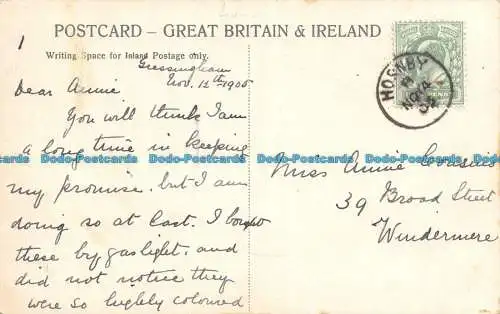 1
POSTCARD – GREAT BRITAIN & IRELAND
Writing Space for Inland Postage only.
Gressingham
Nov. 12th 1905
Dear Annie
You will think I am
a long time in keeping
my promise. but I am
doing so at last. I bought
these by gaslight. and
did not notice they
were so highly coloured
Miss Annie Cousins
39 Broad Street
Windermere
HORNBY
NO 14
Dodo-Postcards Dodo-Postcards Dodo-Postcards Dodo-Postcards